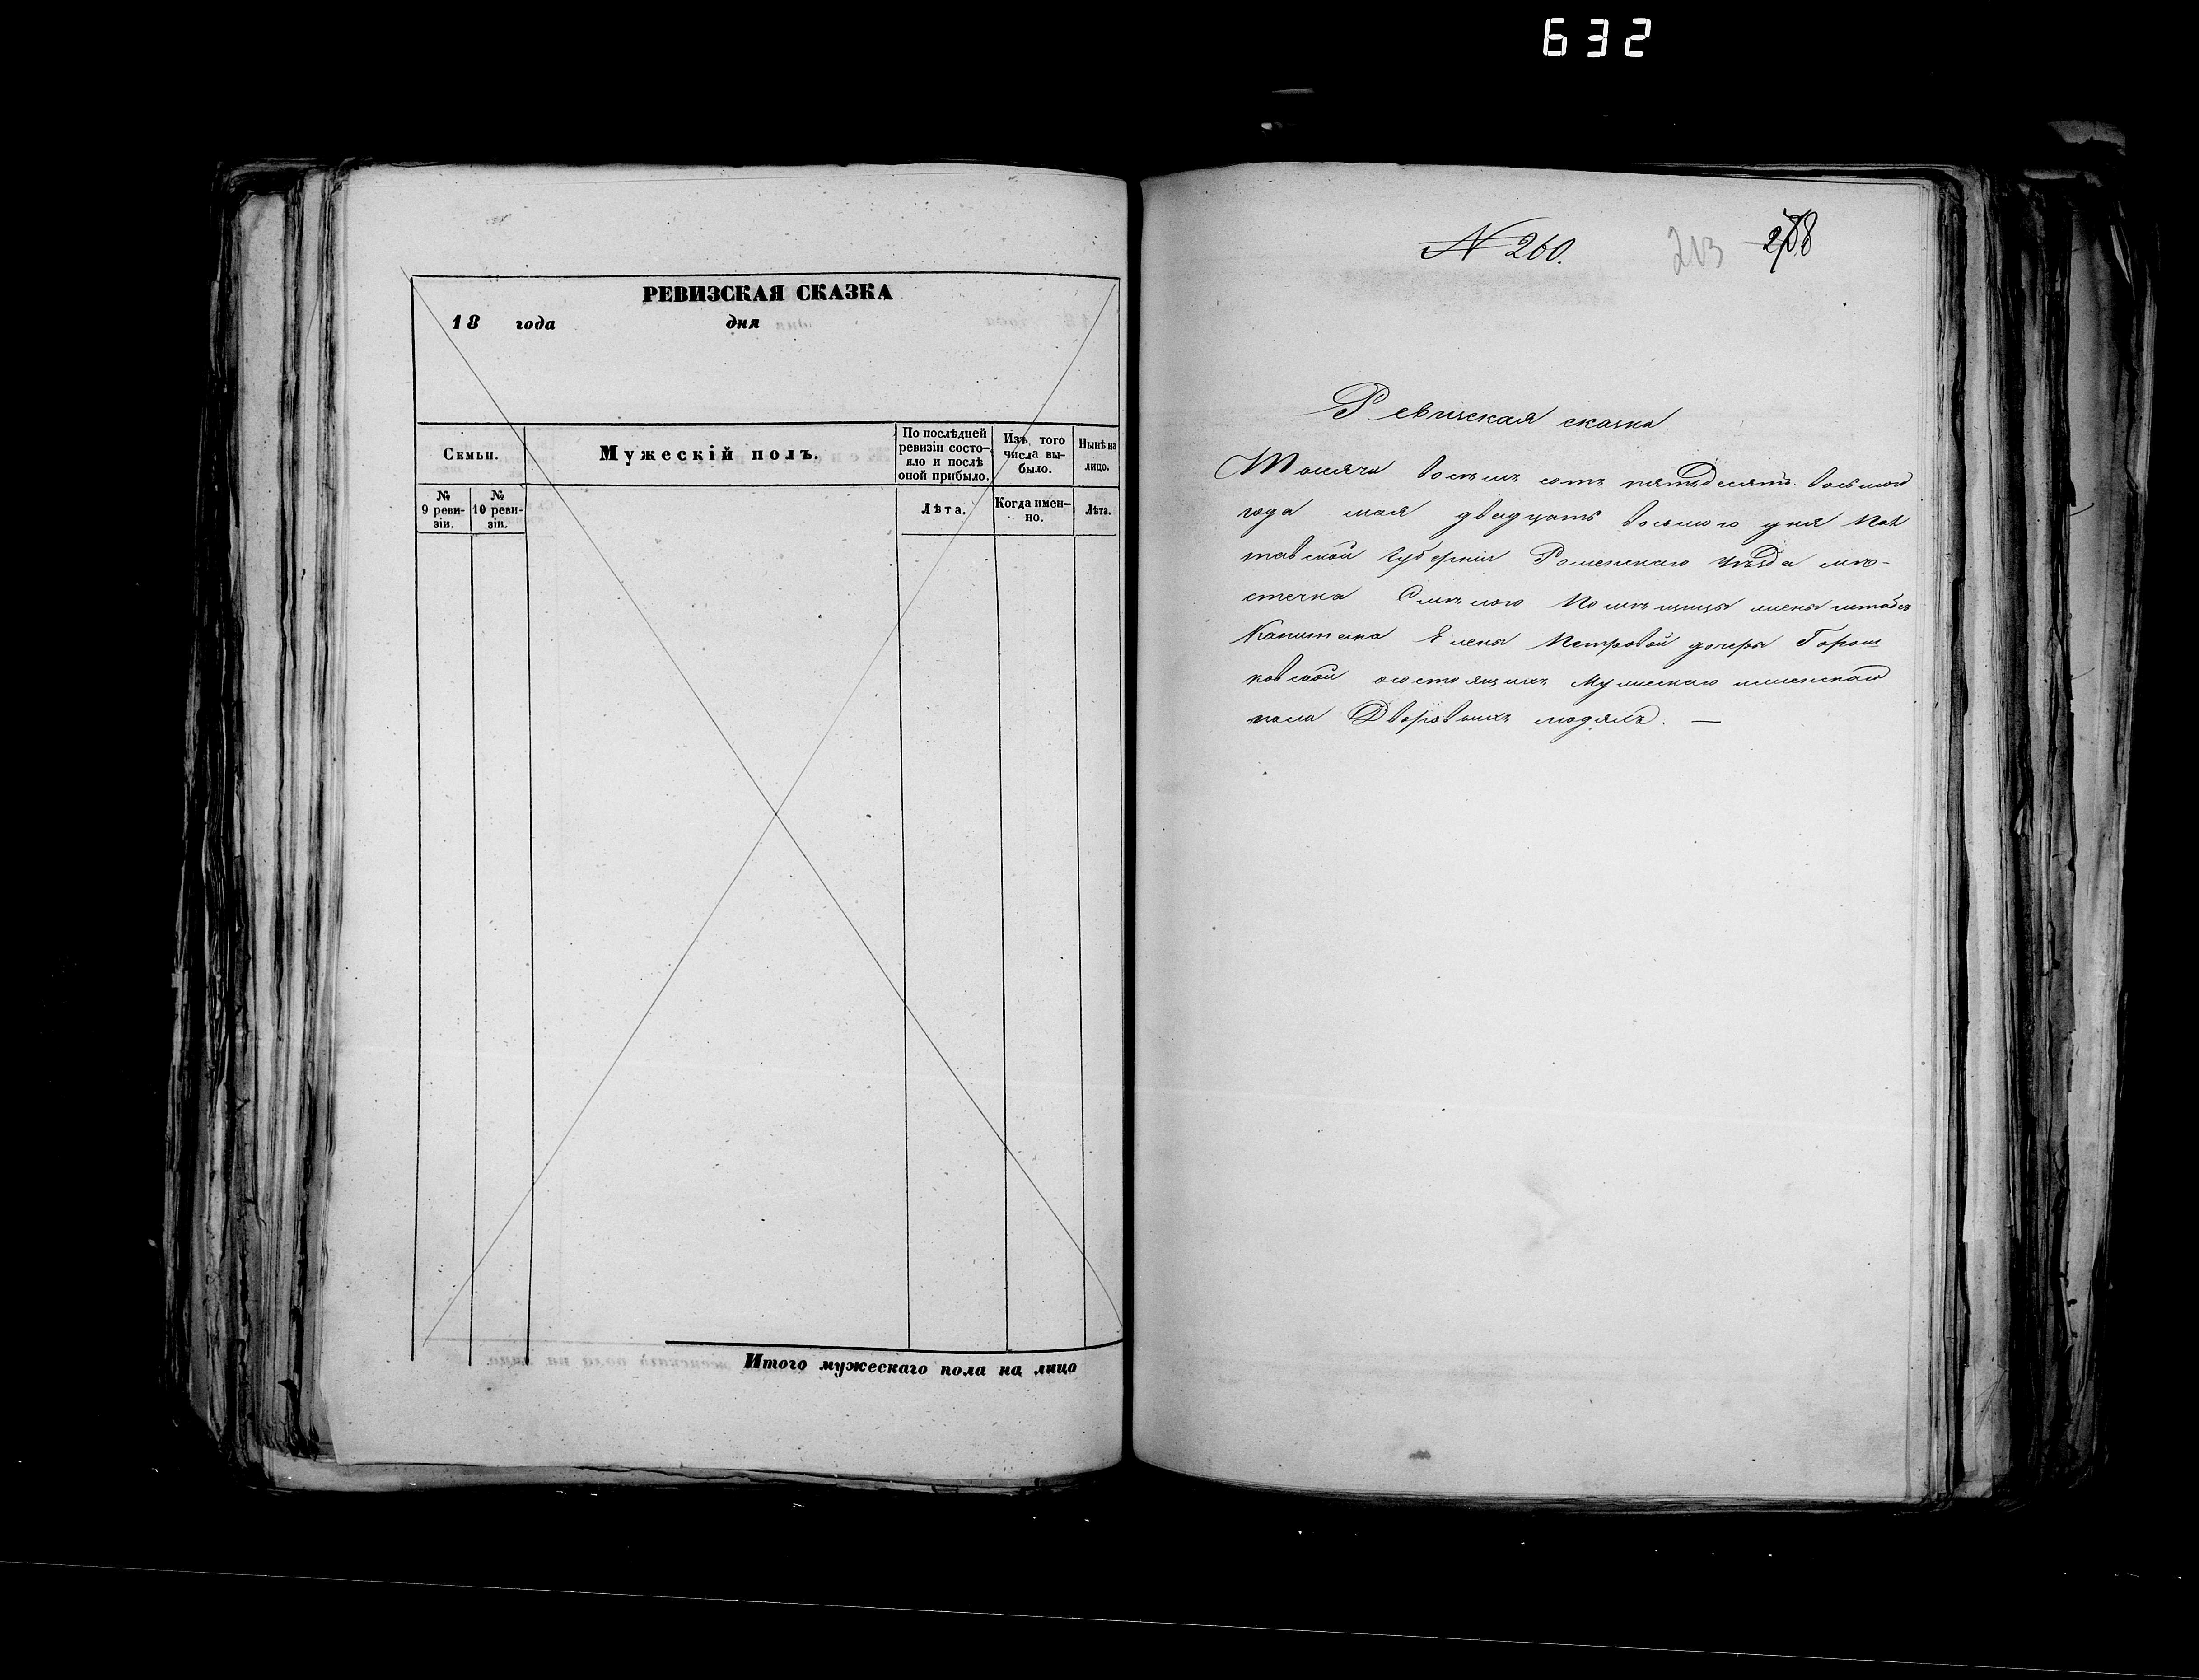 632
РЕВИЗСКАЯ СКАЗКА
18 года дня
Семьи.
Мужескій полъ.
По послѣдней ревизіи состояло и послѣ оной прибыло.
Изъ того числа выбыло.
Нынѣ на лицо.
№ 9 ревизіи.
№ 10 ревизіи.
Лѣта.
Когда именно.
Лѣта.
Итого мужескаго пола на лицо
N 260.
Ревизская сказка
Тысяча восемь сотъ пятьдесятъ восьмого
года мая двадцать восьмого дня Пол
тавской губерніи Роменскаго уѣзда мѣ-
стечка Смѣлого Помѣщицы жены штабсъ
Капитана Елены Петровой дочери Горош
ковской о состоящихъ мужеска женскаго
пола Дворовыхъ людяхъ. —